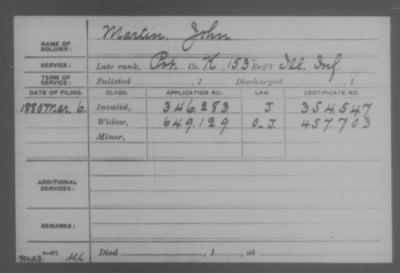 NAME OF SOLDIER: Martin, John
SERVICE: Late rank, Pvt. Co. K, 153 Reg't Ill. Inf
TERM OF SERVICE: Enlisted , 1 Discharged , 1
DATE OF FILING. CLASS. APPLICATION NO. LAW. CERTIFICATE NO.
1880 Mar 6. Invalid, 346.283 J 354547
Widow, 649.129 O.J. 457.703
Minor,
ADDITIONAL SERVICES:
REMARKS:
Died , 1 , at